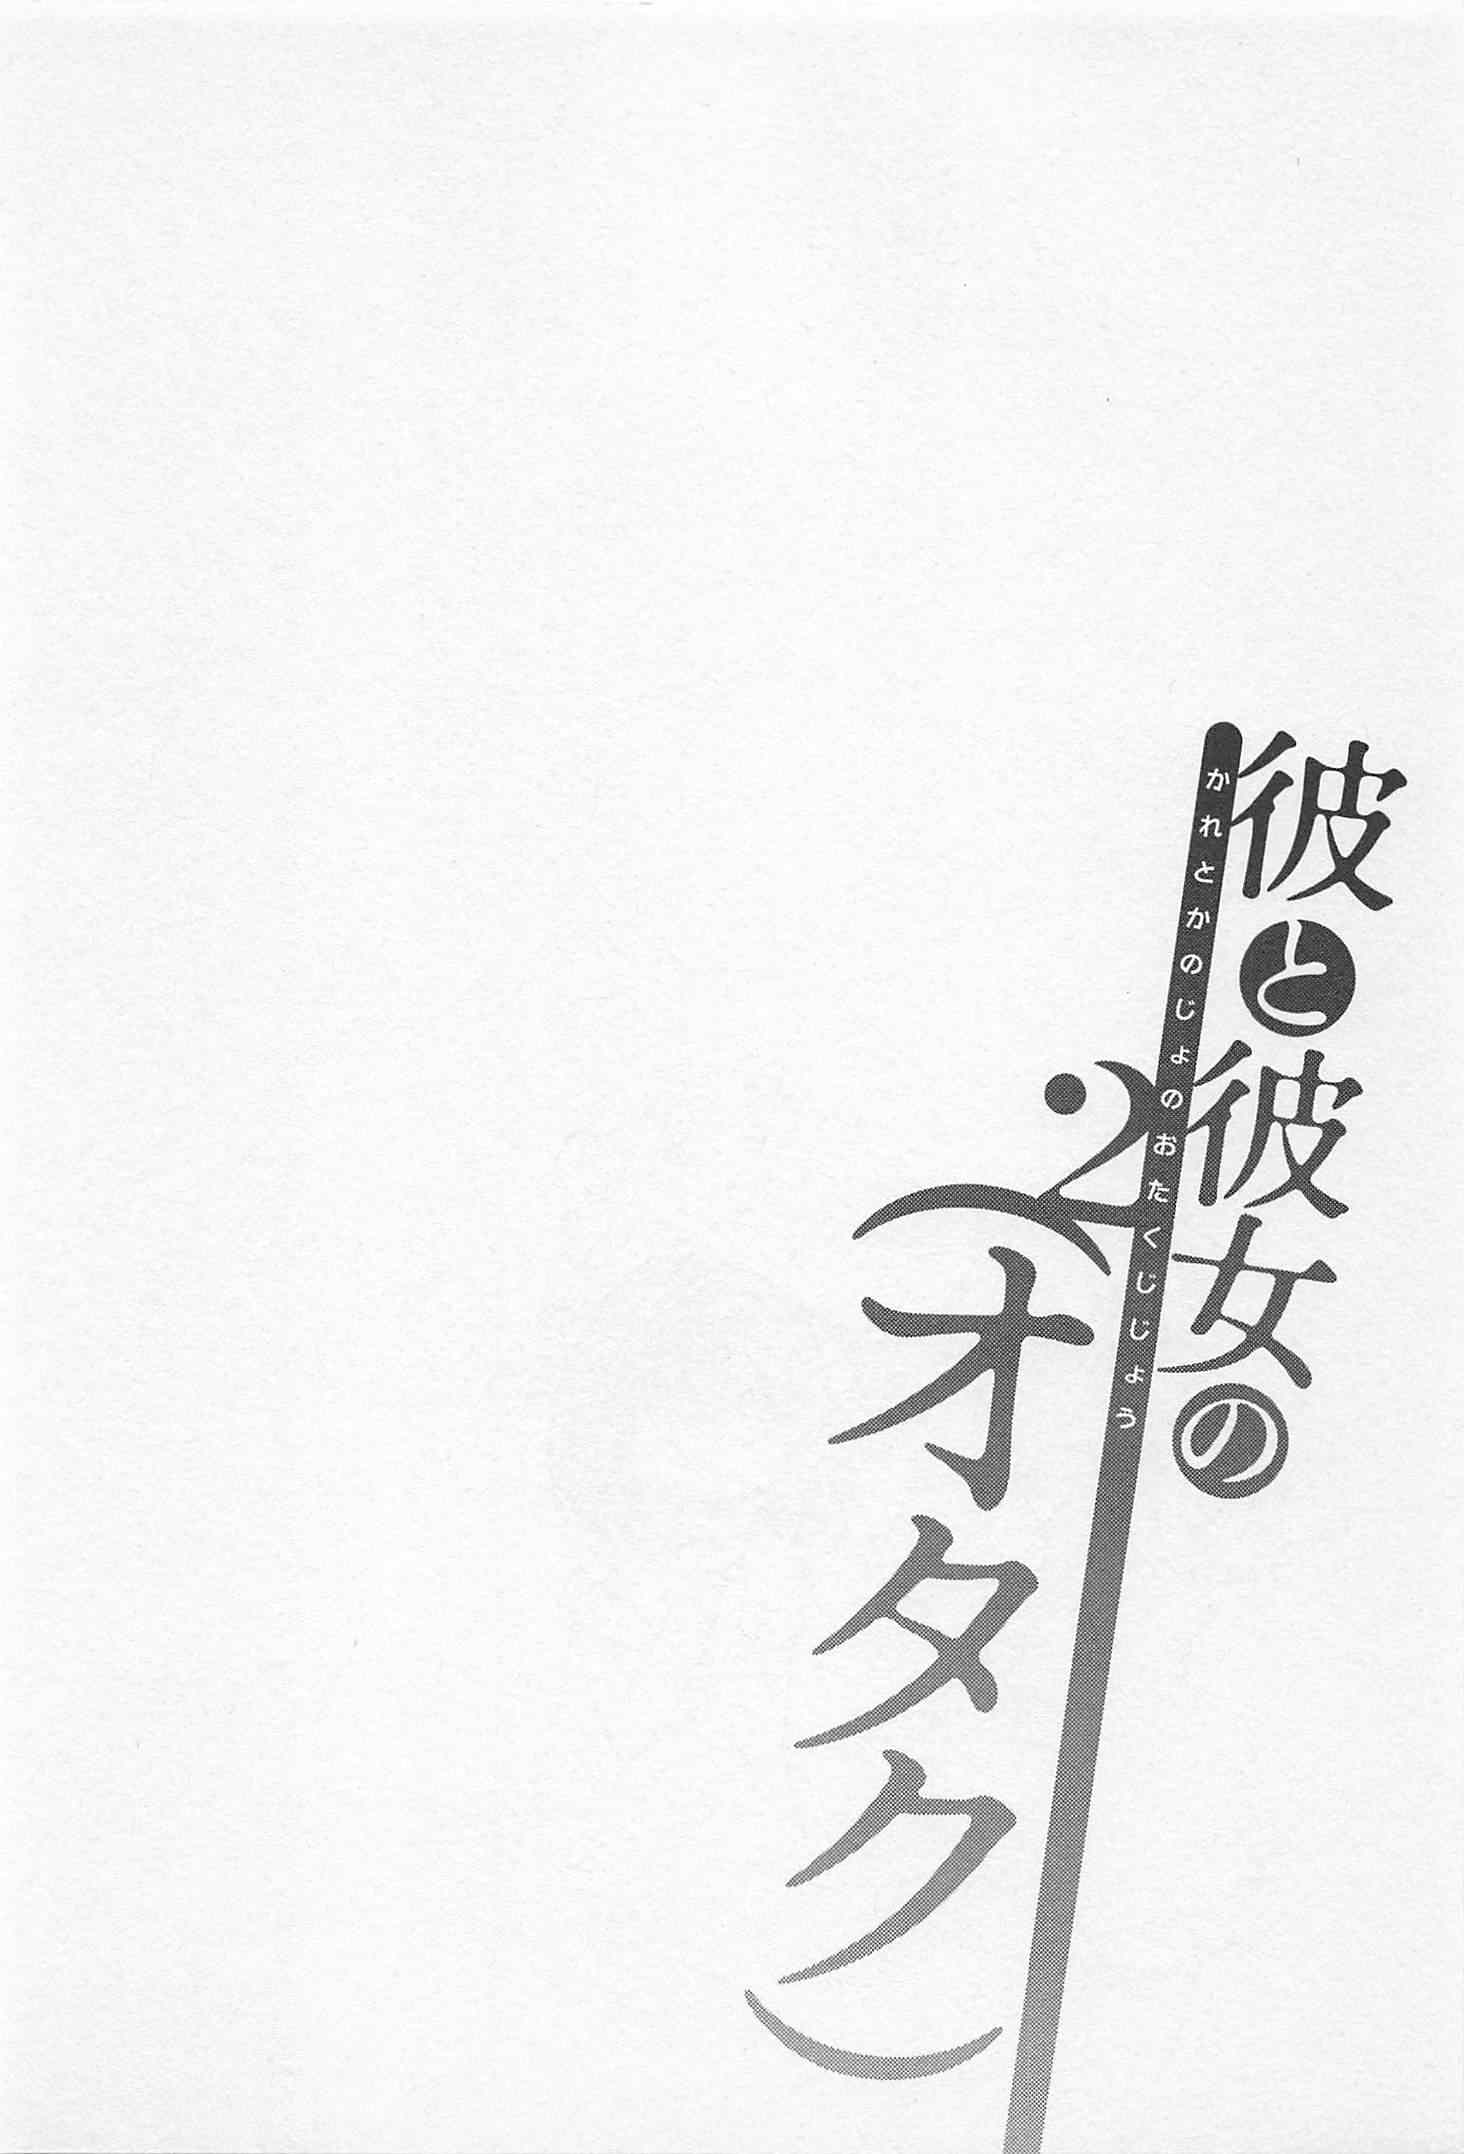 彼と彼女の
かれとかのじょのおたくじじょう
2
(オタク)